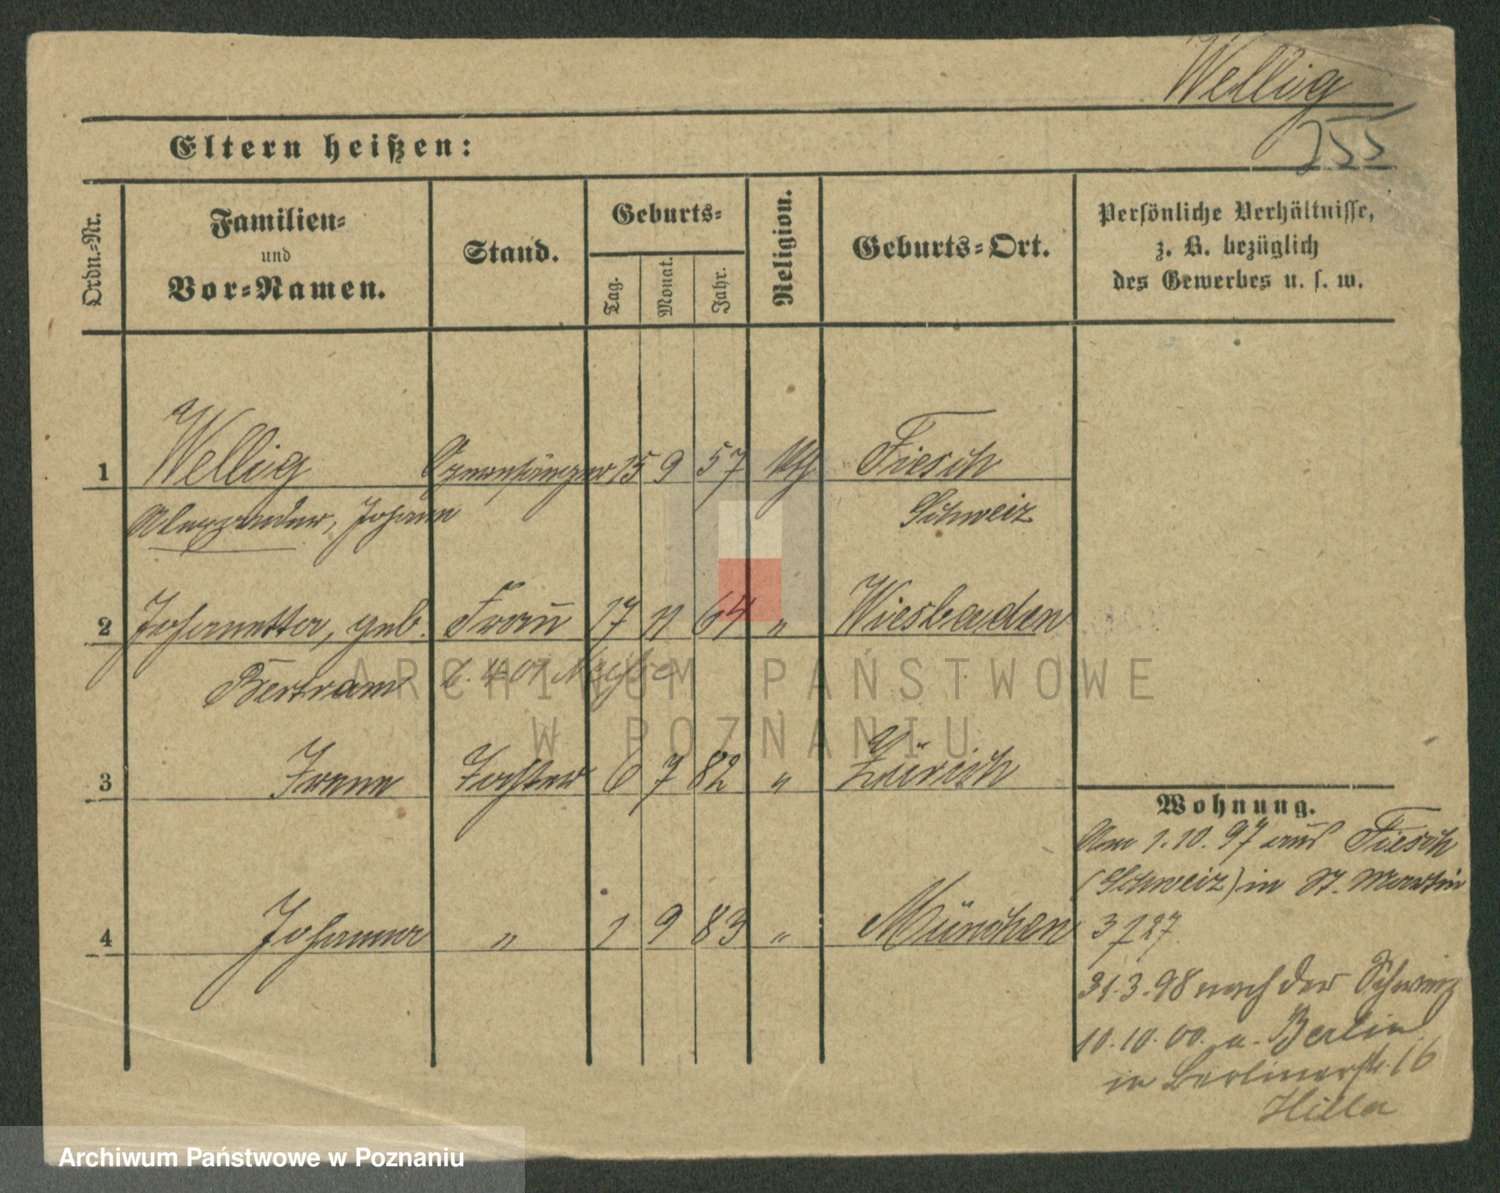 Wellig
255
Eltern heißen:
Ordn.-Nr.
Familien-
und
Vor-Namen.
Stand.
Geburts-
Tag.
Monat.
Jahr.
Religion.
Geburts-Ort.
Persönliche Verhältnisse,
z. B. bezüglich
des Gewerbes u. s. w.
1 Wellig Opernsänger 15 9 57 kth Fiesch
Alexander, Johann Schweiz
2 Johanetta, geb. Frau 17 11 64 " Wiesbaden
Bertram 4.01 Neisse
3 Irene Tochter 6 7 82 " Zürich
4 Johanna " 1 9 83 " München
Wohnung.
Am 1.10.97 aus Fiesch
(Schweiz) in St. Martin
3
31.3.98 nach der Schweiz
10.10.00. a. Berlin
in Berlinerstr. 16
ARCHIWUM PAŃSTWOWE
W POZNANIU
Archiwum Państwowe w Poznaniu